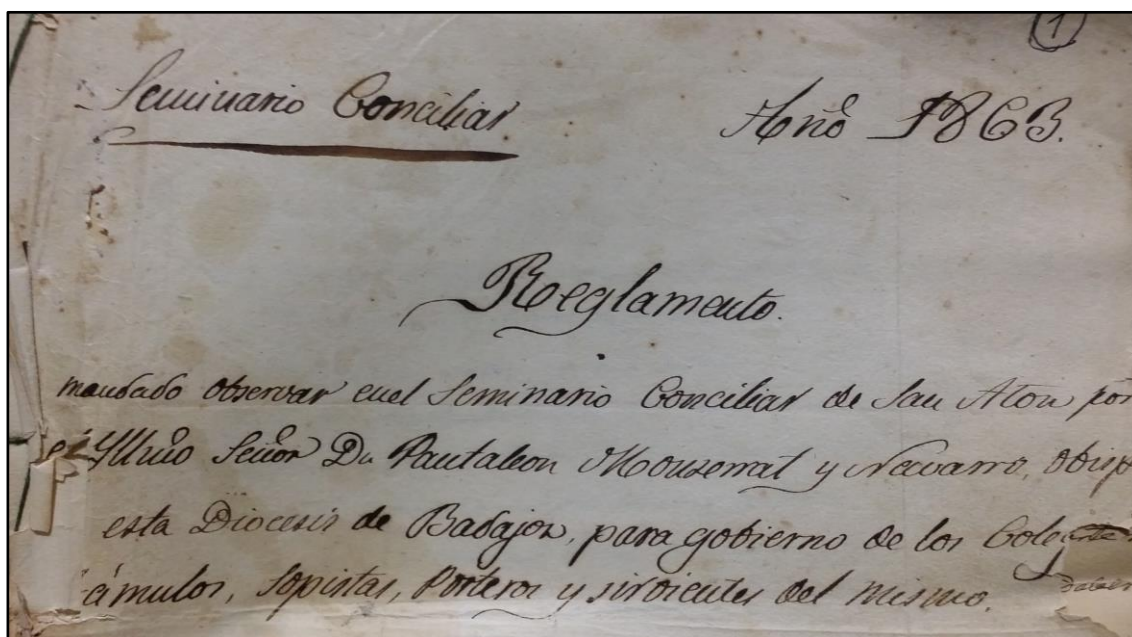 1
Seminario Conciliar Año 1863.
Reglamento.
mandado observar en el Seminario Conciliar de San Aton por
Yllmo Señor Dn Pantaleon Monserrat y Navarro, Obisp
esta Diocesis de Badajoz, para gobierno de los
ámulos, Sopistas, Porteros y sirvientes del mismo.